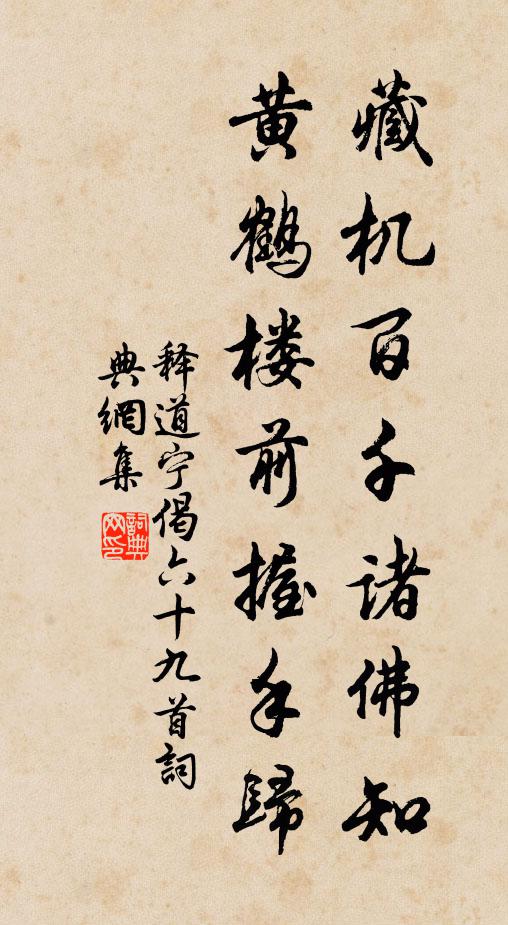 藏机百千诸佛知
黄鹤楼前握手归
释道宁偈六十九首詞
典網集
詞典
网印